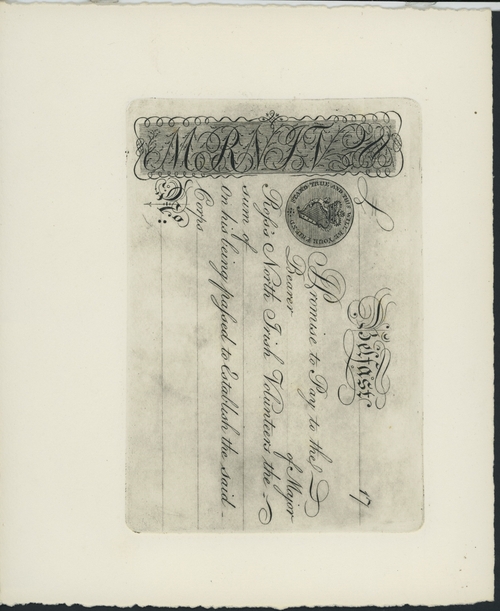 MRNIV
Belfast 17
£
I Promise to Pay to the
Bearer of Major
Roſs's North Irish Volunteers the
sum of
on his being paſsed to Establish the said
Corps
No:
TRUE AND YOU WILL